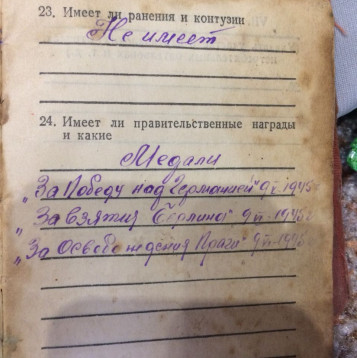 23. Имеет ли ранения и контузии
Не имеет
24. Имеет ли правительственные награды
и какие
Медали
„За Победу над Германией" 9/V-1945
„За Взятия Берлина"
„За Освобождения Праги"